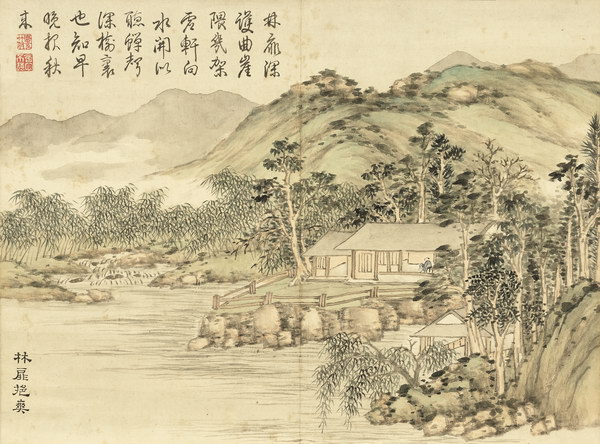 林扉深
護曲崖
隈幾架
軒向
水開
聽蟬聲
深裏
也知早
晚報秋
來
林扉挹爽